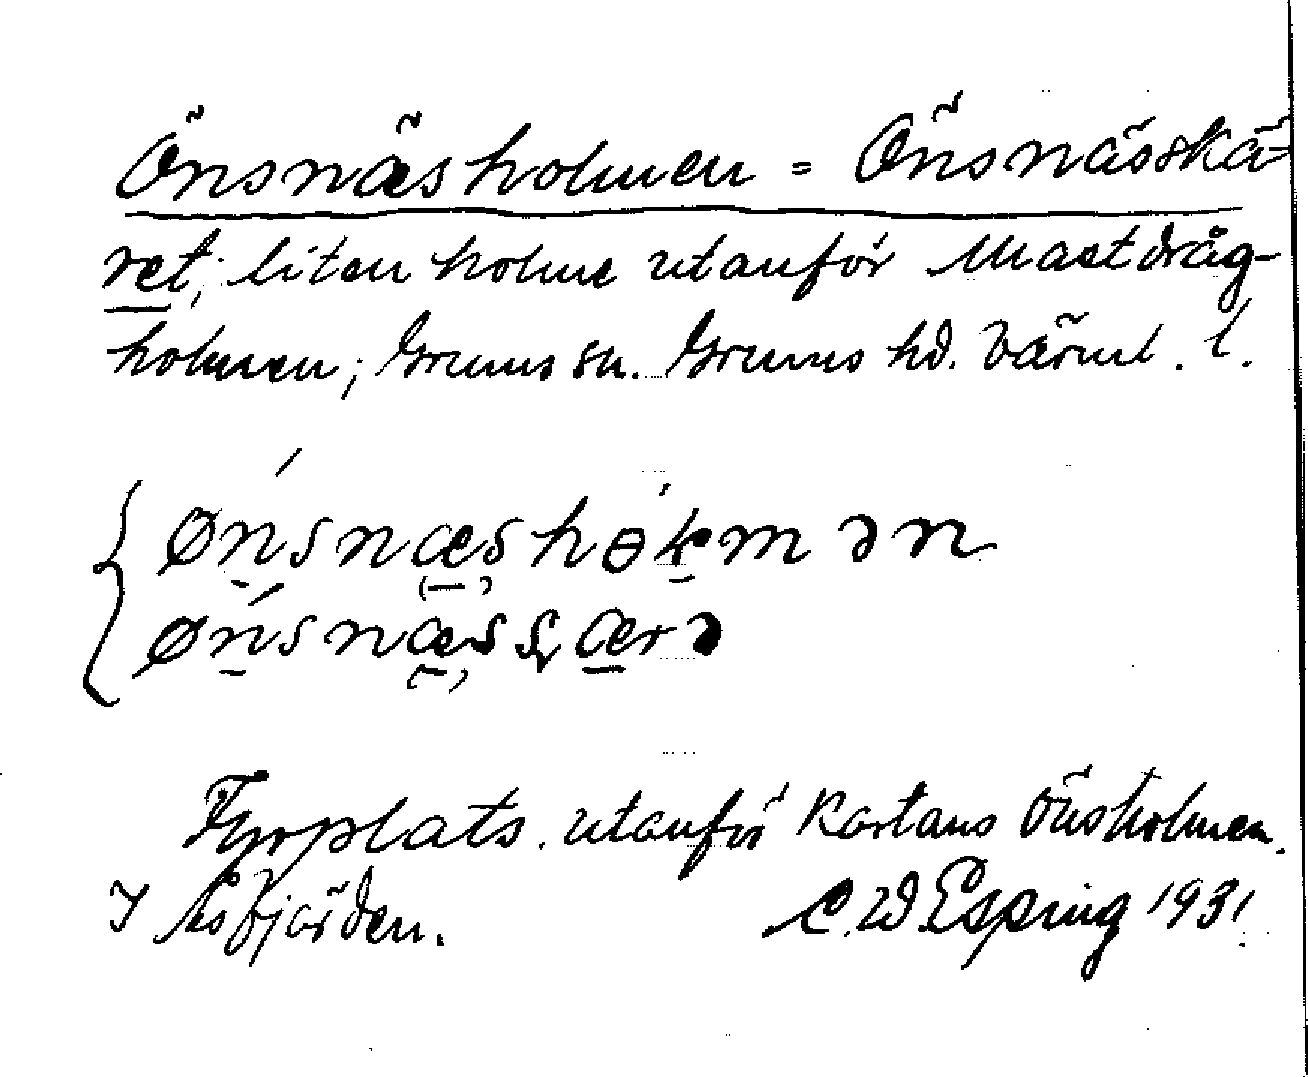 Önsnäsholmen = Önsnässkä-
ret; liten holme utanför Mastdråg-
holmen; Grums sn. Grums hd. Värml. l.
Fyrplats. utanför Kartans Önsholmen.
I Åsfjärden. C. W Esping 1931